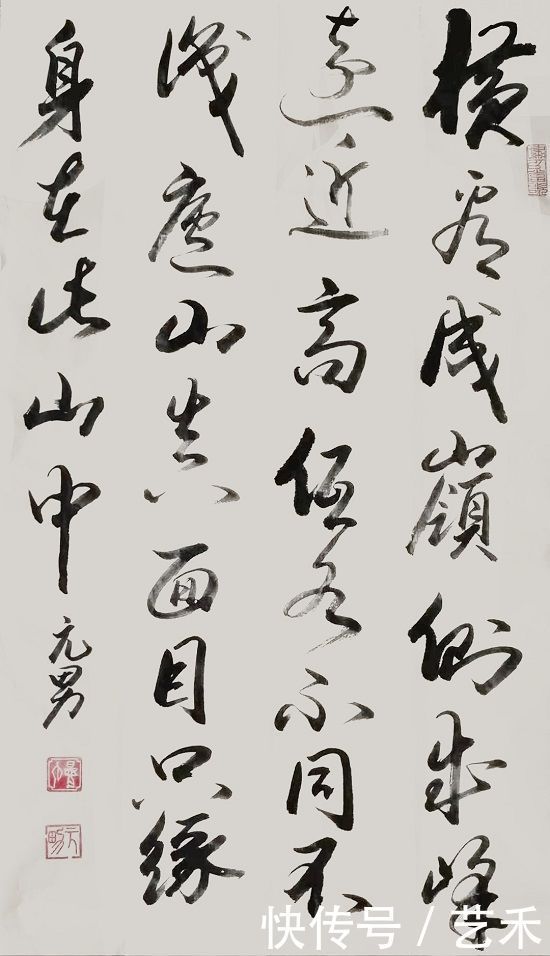 横看成嶺側成峰
遠近高低各不同不
識廬山真面目只緣
身在此山中
元男
快传号 / 艺禾